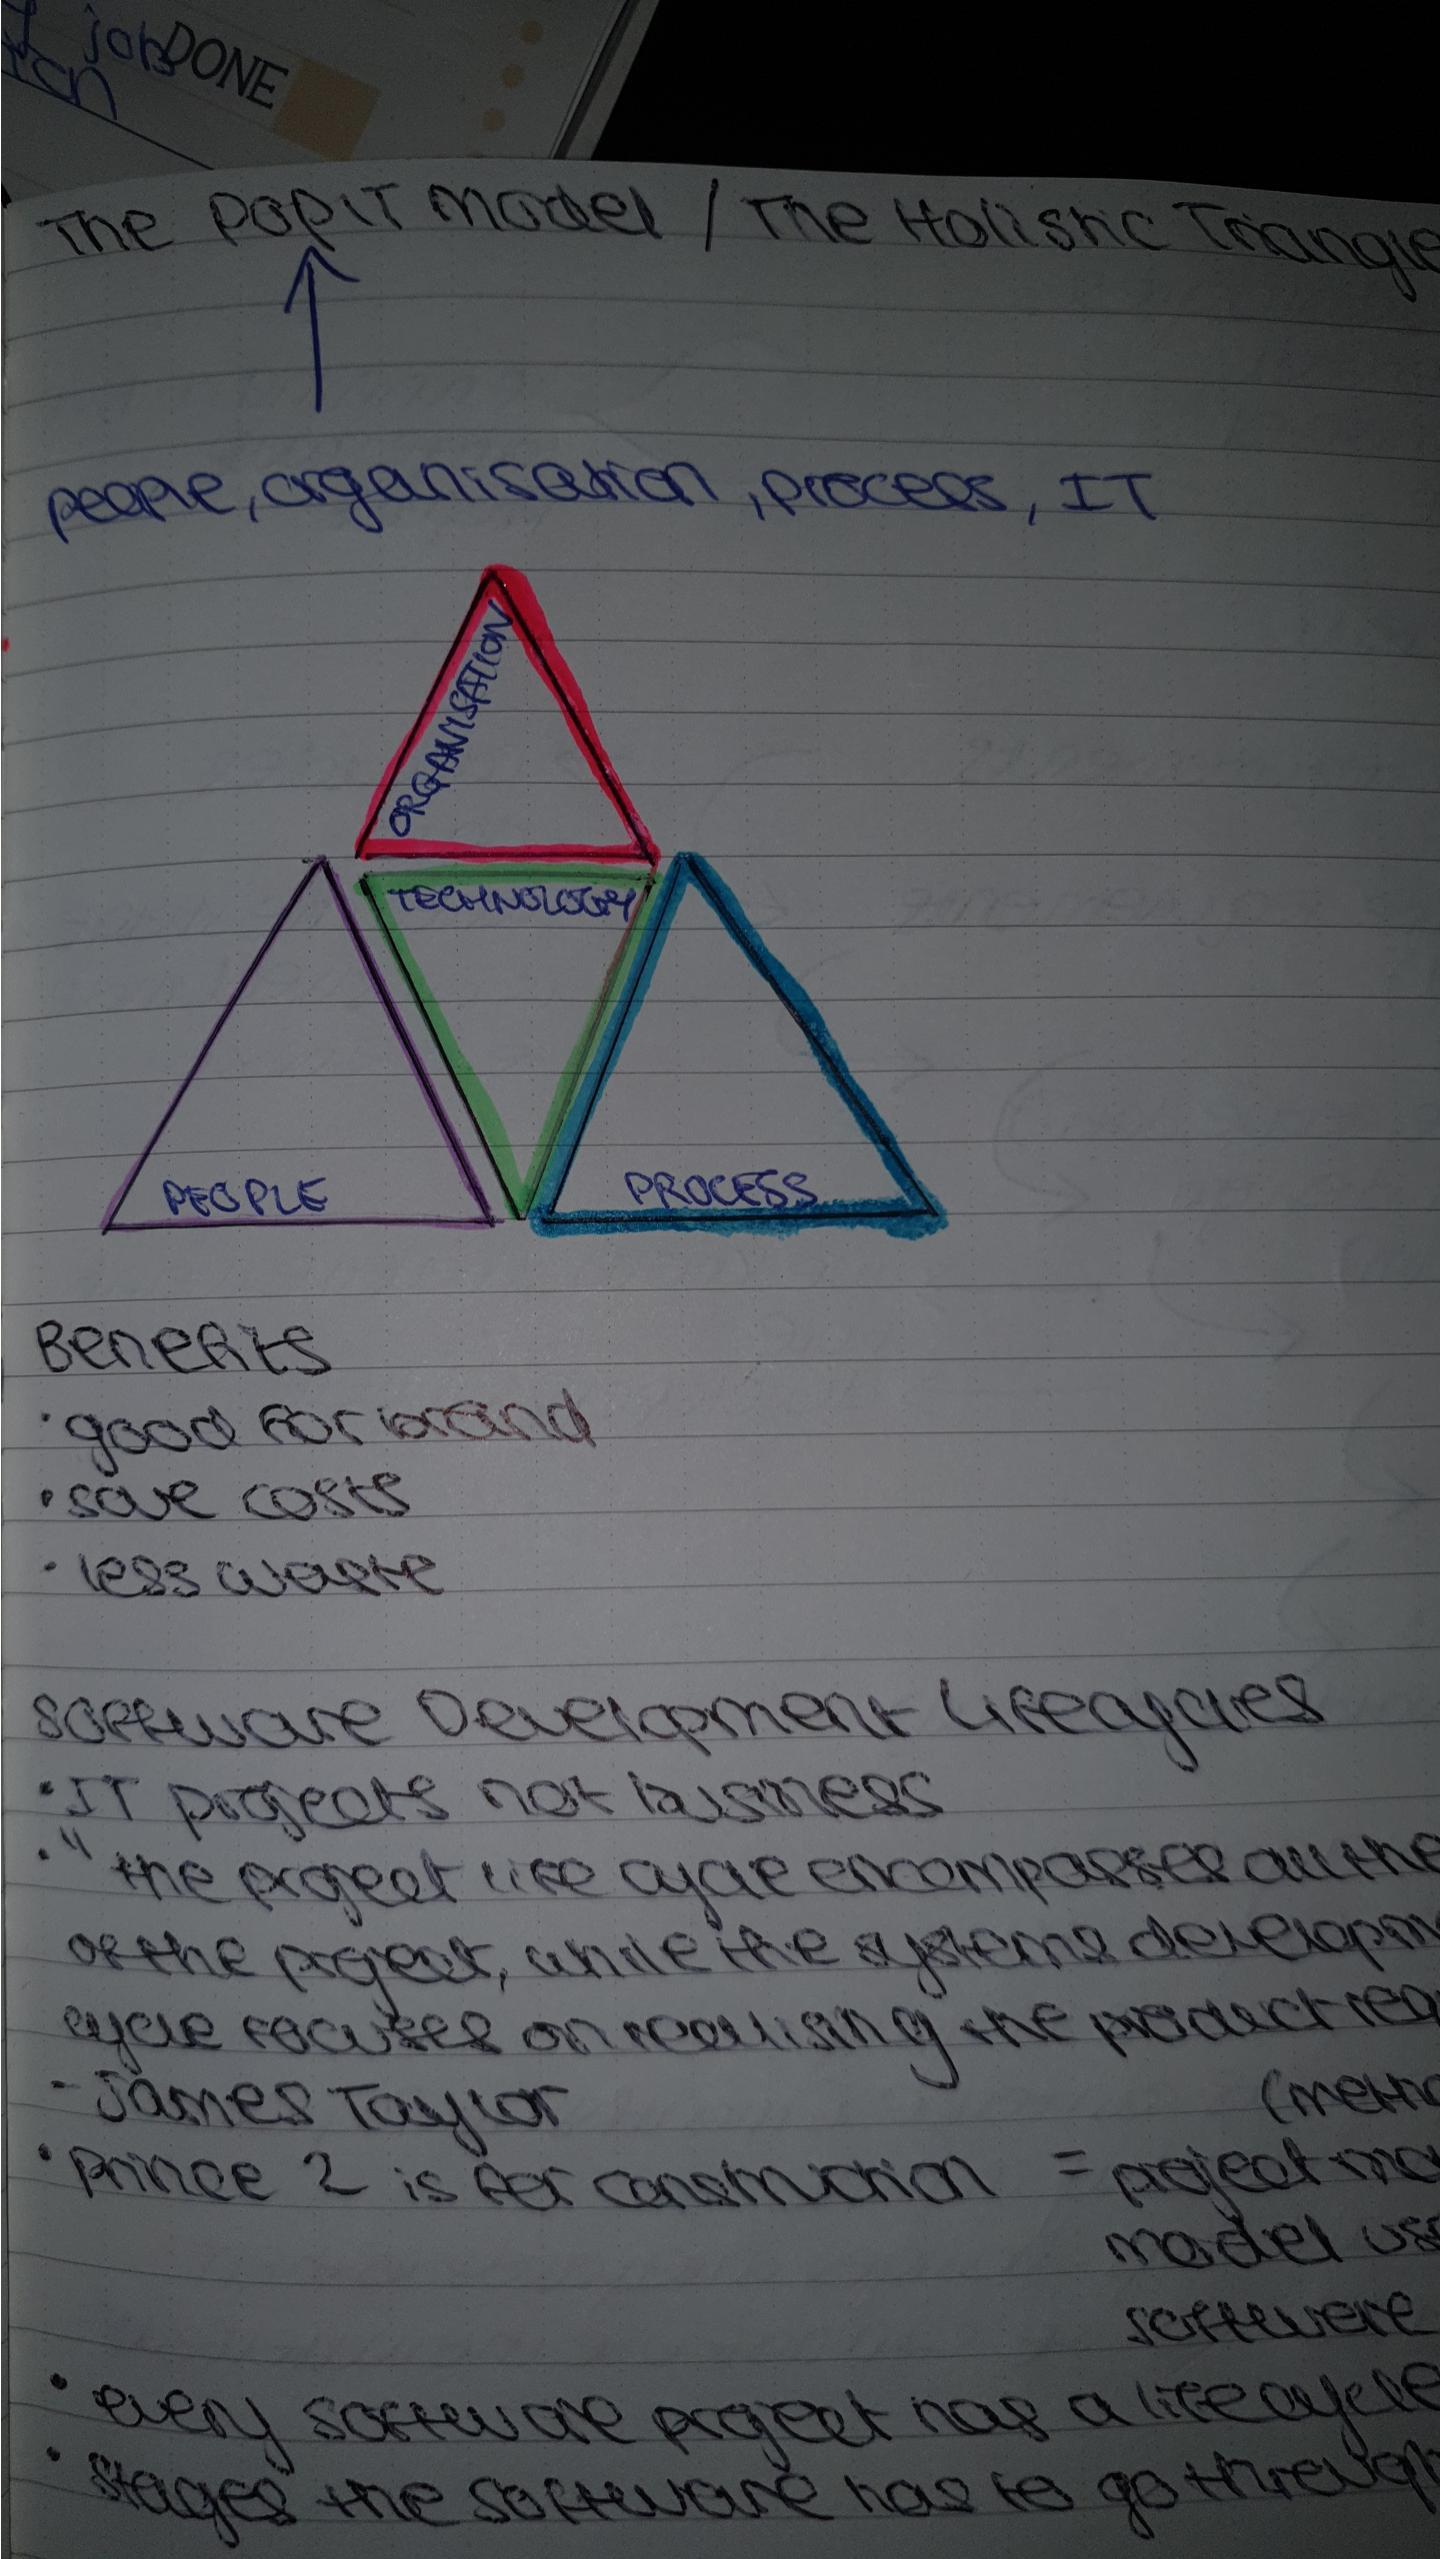 job DONE
The POPIT Model / The Holistic Triangle
people, organisation, process, IT
ORGANISATION
TECHNOLOGY
PEOPLE
PROCESS
Benefits
· good for brand
· save costs
· less waste
Software Development Lifecycles
· IT projects not business
· "the project life cycle encompasses all the
of the project, while the systems developm
cycle focuses on realising the product req
- James Taylor
(metho
· Prince 2 is for construction = project ma
model us
software
· every software project has a lifecycle
· stages the software has to go through